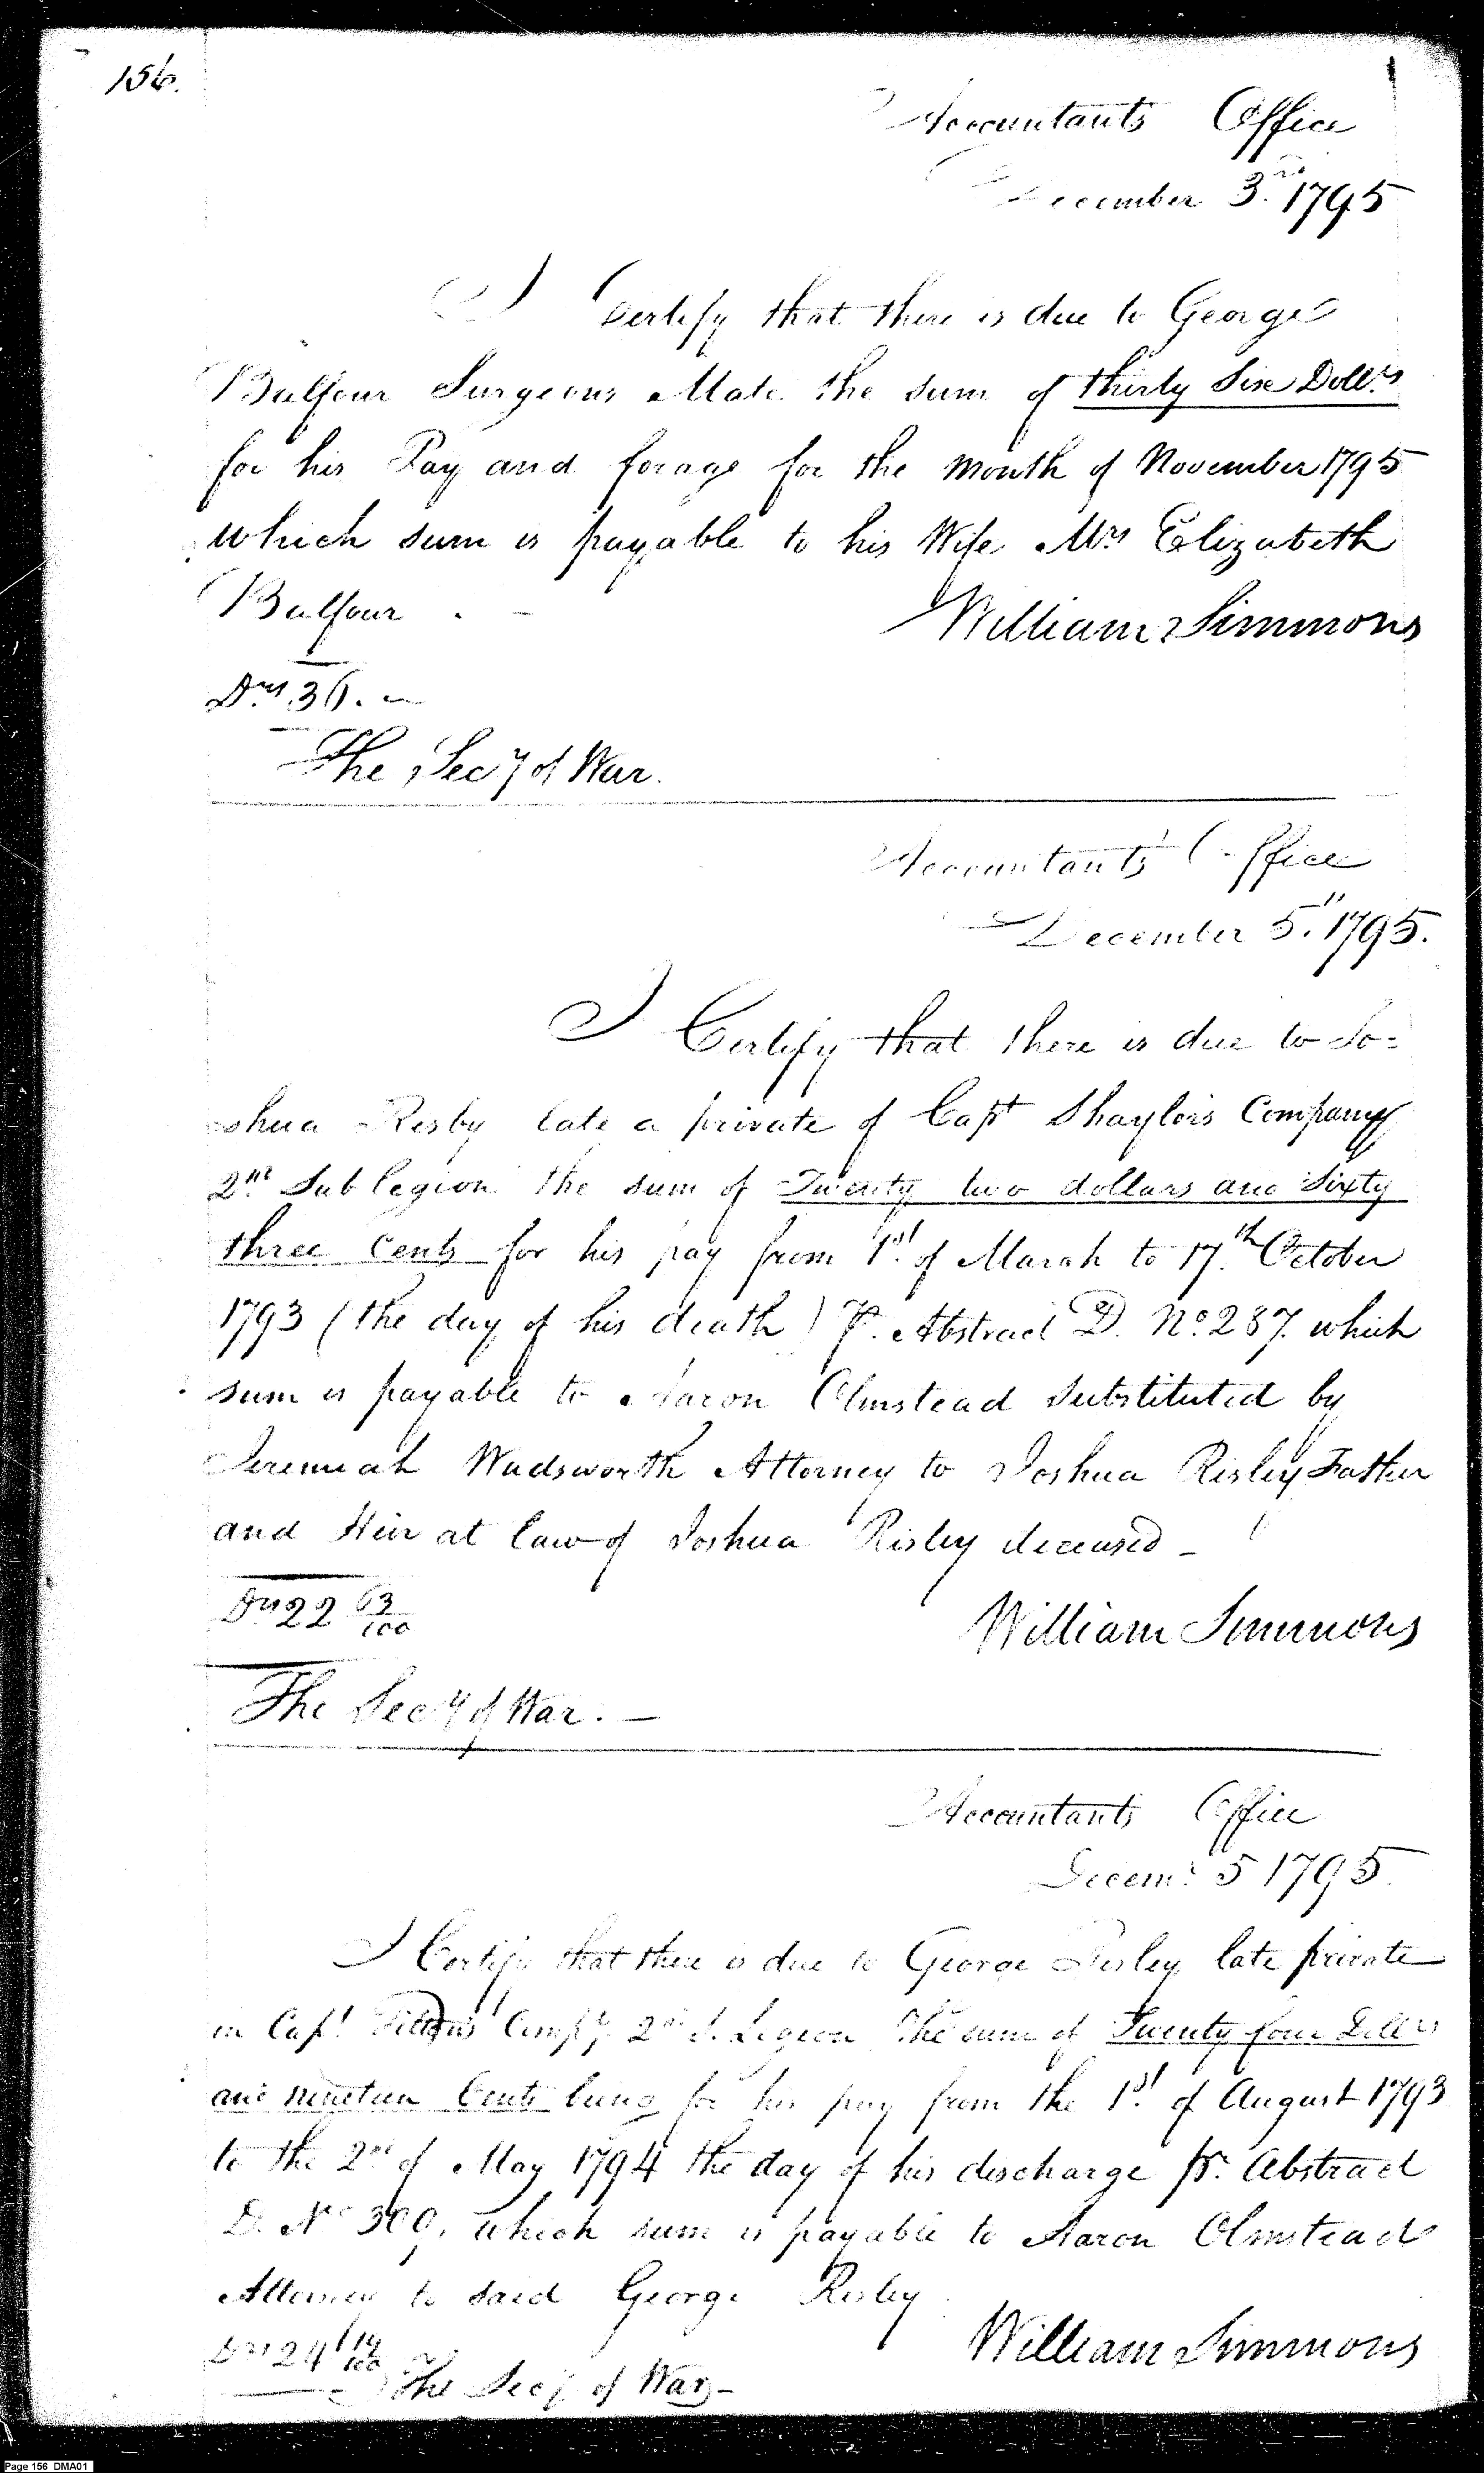 156.
Accountants Office
December 3rd 1795
I Certify that there is due to George
Balfour Surgeons Mate the sum of thirty Six Dollrs
for his Pay and forage for the month of November 1795
which sum is payable to his Wife Mrs Elizabeth
Balfour . –
William Simmons
Drs 36. –
The Secy of War.
Accountants Office
December 5th 1795.
I Certify that there is due to Jo=
shua Risby late a private of Capt Shaylors Company
2nd Sub legion the sum of Twenty two dollars and Sixty
three Cents for his pay from 1st of March to 17th October
1793 (the day of his death) Pr. Abstract D. No. 287. which
sum is payable to Aaron Olmstead Substituted by
Jeremiah Wadsworth Attorney to Joshua Risley Father
and Heir at law of Joshua Risley deceased –
Drs 22 63/100
William Simmons
The Secy of War. –
Accountants Office
Decemr 5 1795
I Certify that there is due to George Risley late private
in Capt. Compy 2nd S. Legion The sum of Twenty four Dollrs
and nineteen Cents being for his pay from the 1st of August 1793
to the 2nd of May 1794 the day of his discharge pr. Abstract
D. No 300, which sum is payable to Aaron Olmstead
Attorney to said George Risley
Drs 24 19/100
William Simmons
The Secy of War –
Page 156 DMA01